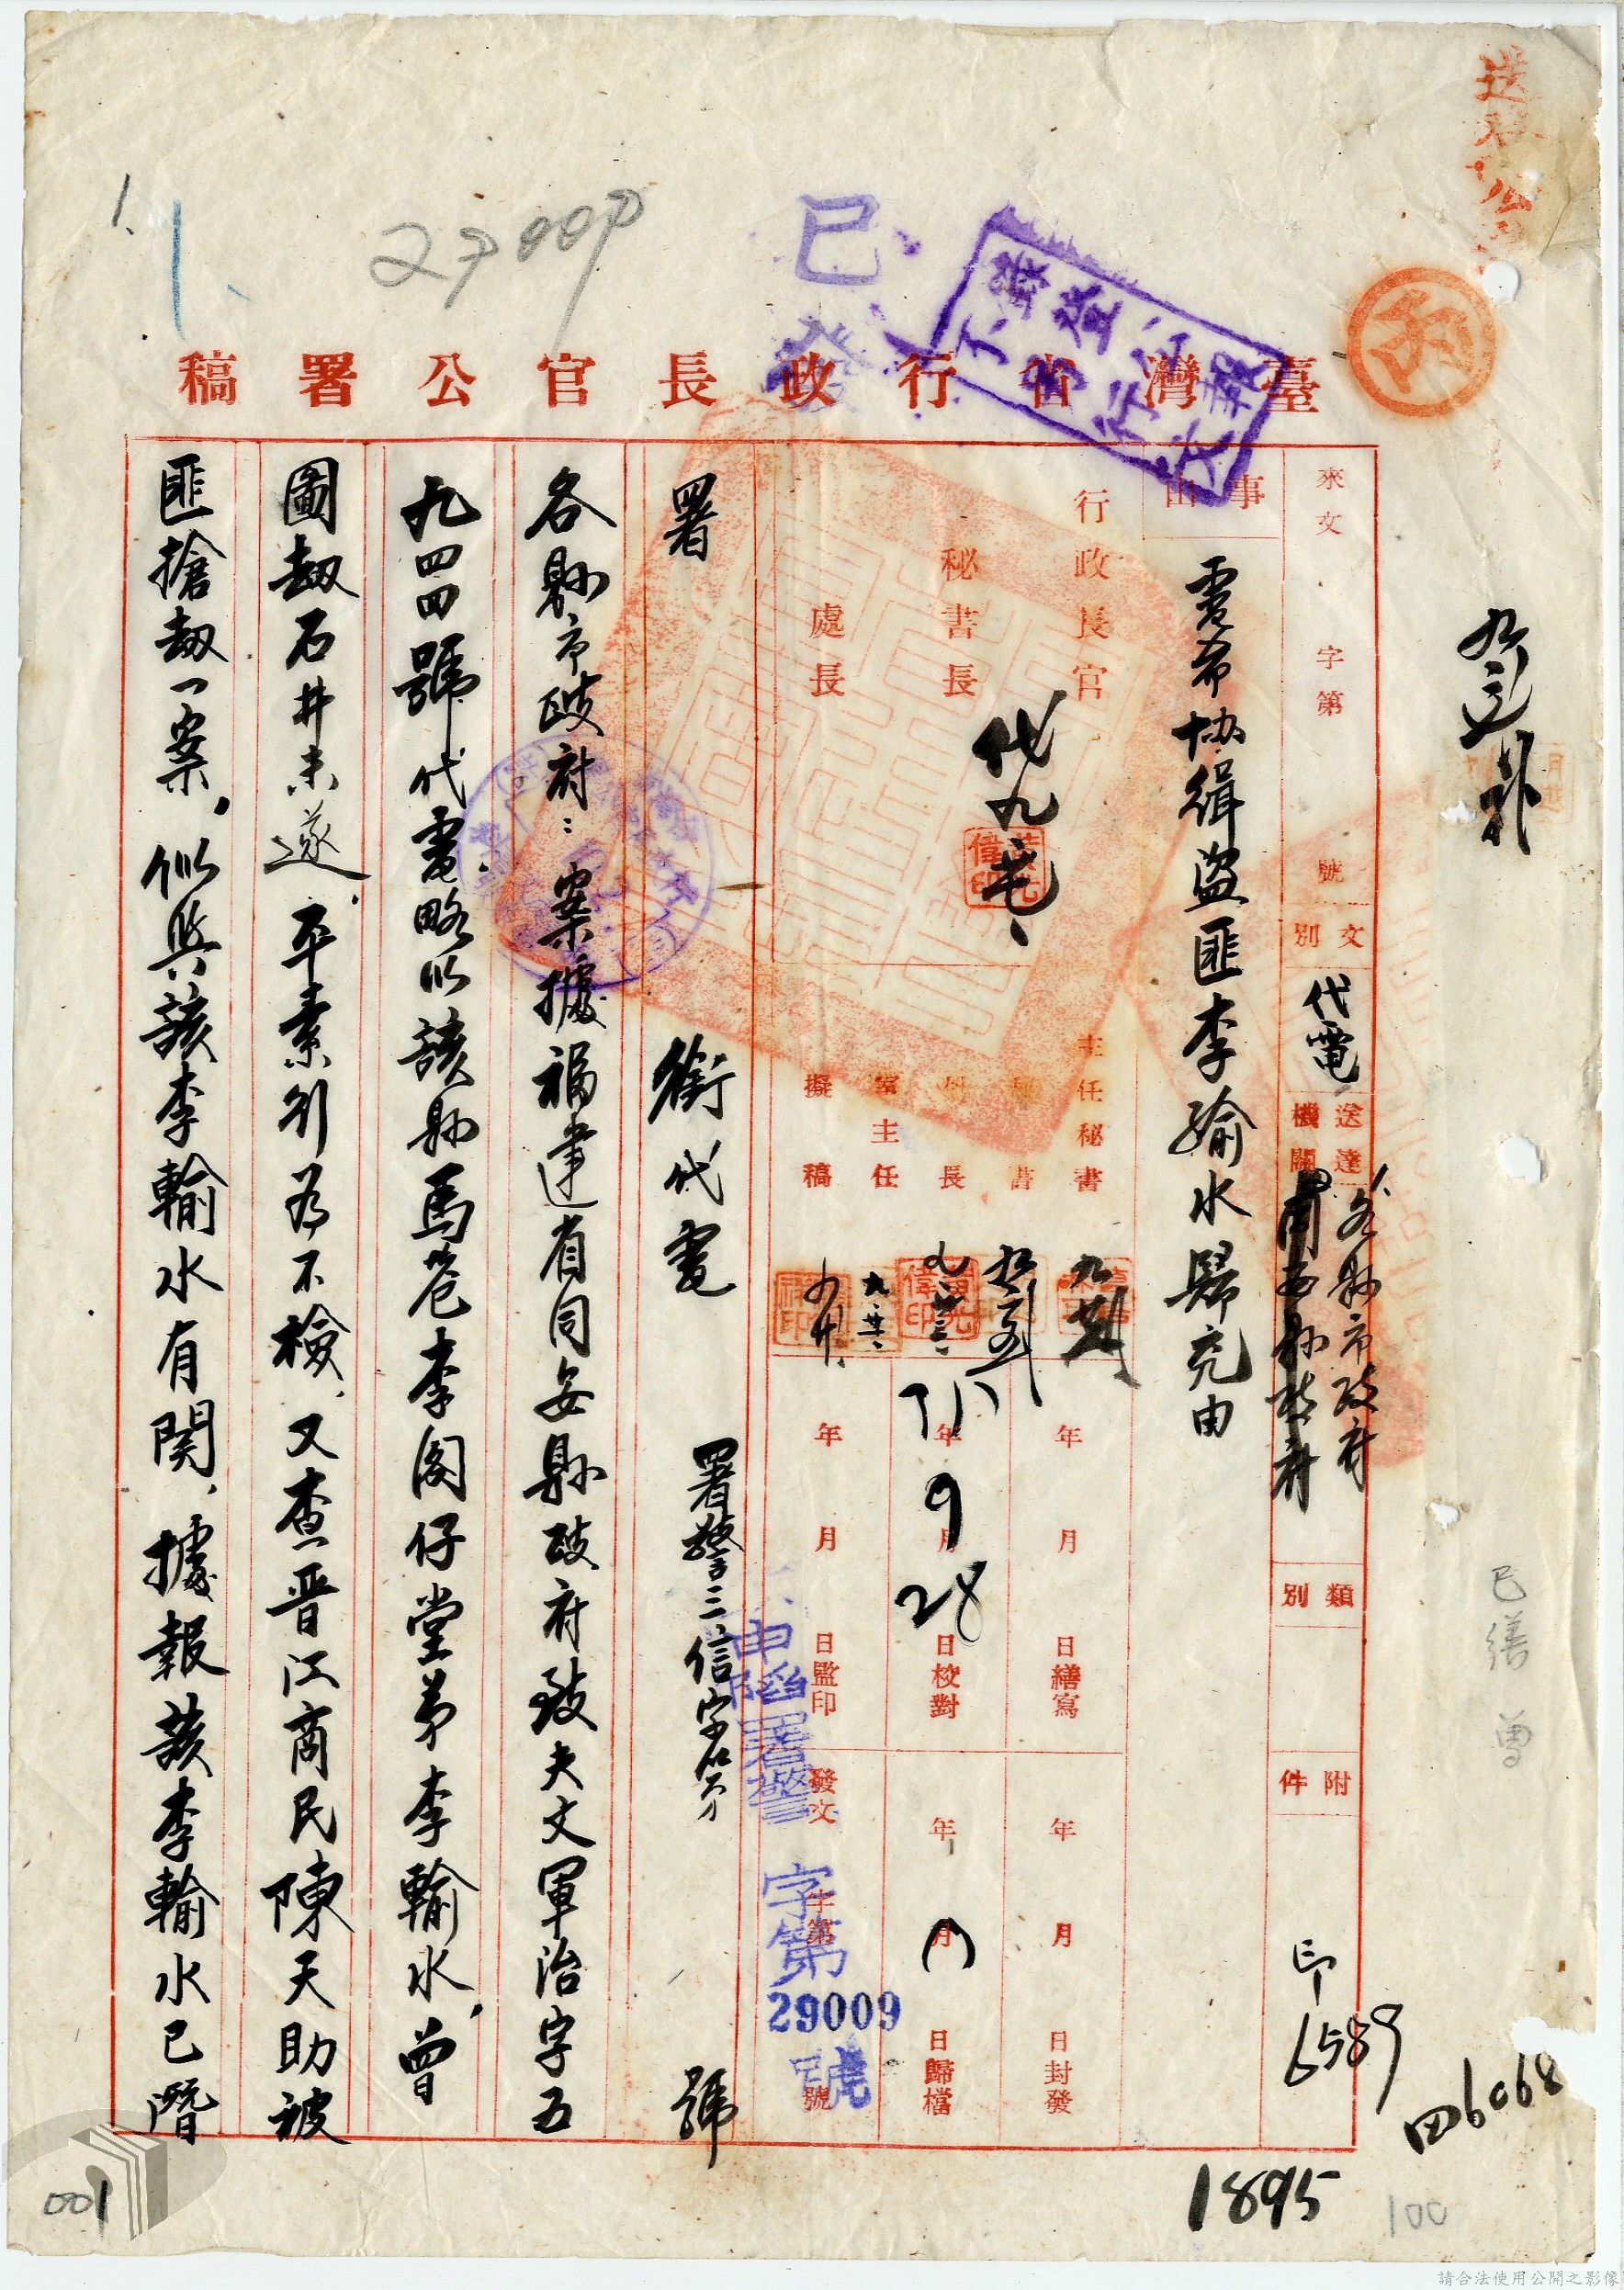 臺灣省行政長官公署稿
已發
不另行文
來文 字第 號
文別 代電
送達機關 各縣市政府
類別
附件
事由
電希協緝盜匪李輸水歸究由
行政長官
秘書長
處長
主任秘書
秘書
科長
室主任
擬稿
年 月 日繕寫
年 9月 28日校對
年 月 日監印
年 月 日封發
年 月 日歸檔
發文 字第 號
申陷署警
字第29009號
署 銜代電 署警三信字第 號
各縣市政府：案據福建省同安縣政府致夫文軍治字五
九四四號代電略以該縣馬巷李閣仔堂弟李輸水，曾
圖劫石井未遂，平素行為不檢，又查晉江商民陳天助被
匪搶劫一案，似與該李輸水有関，據報該李輸水已潛
已繕 曾
印6589
四6068
1895
100
001
1、
請合法使用公開之影像